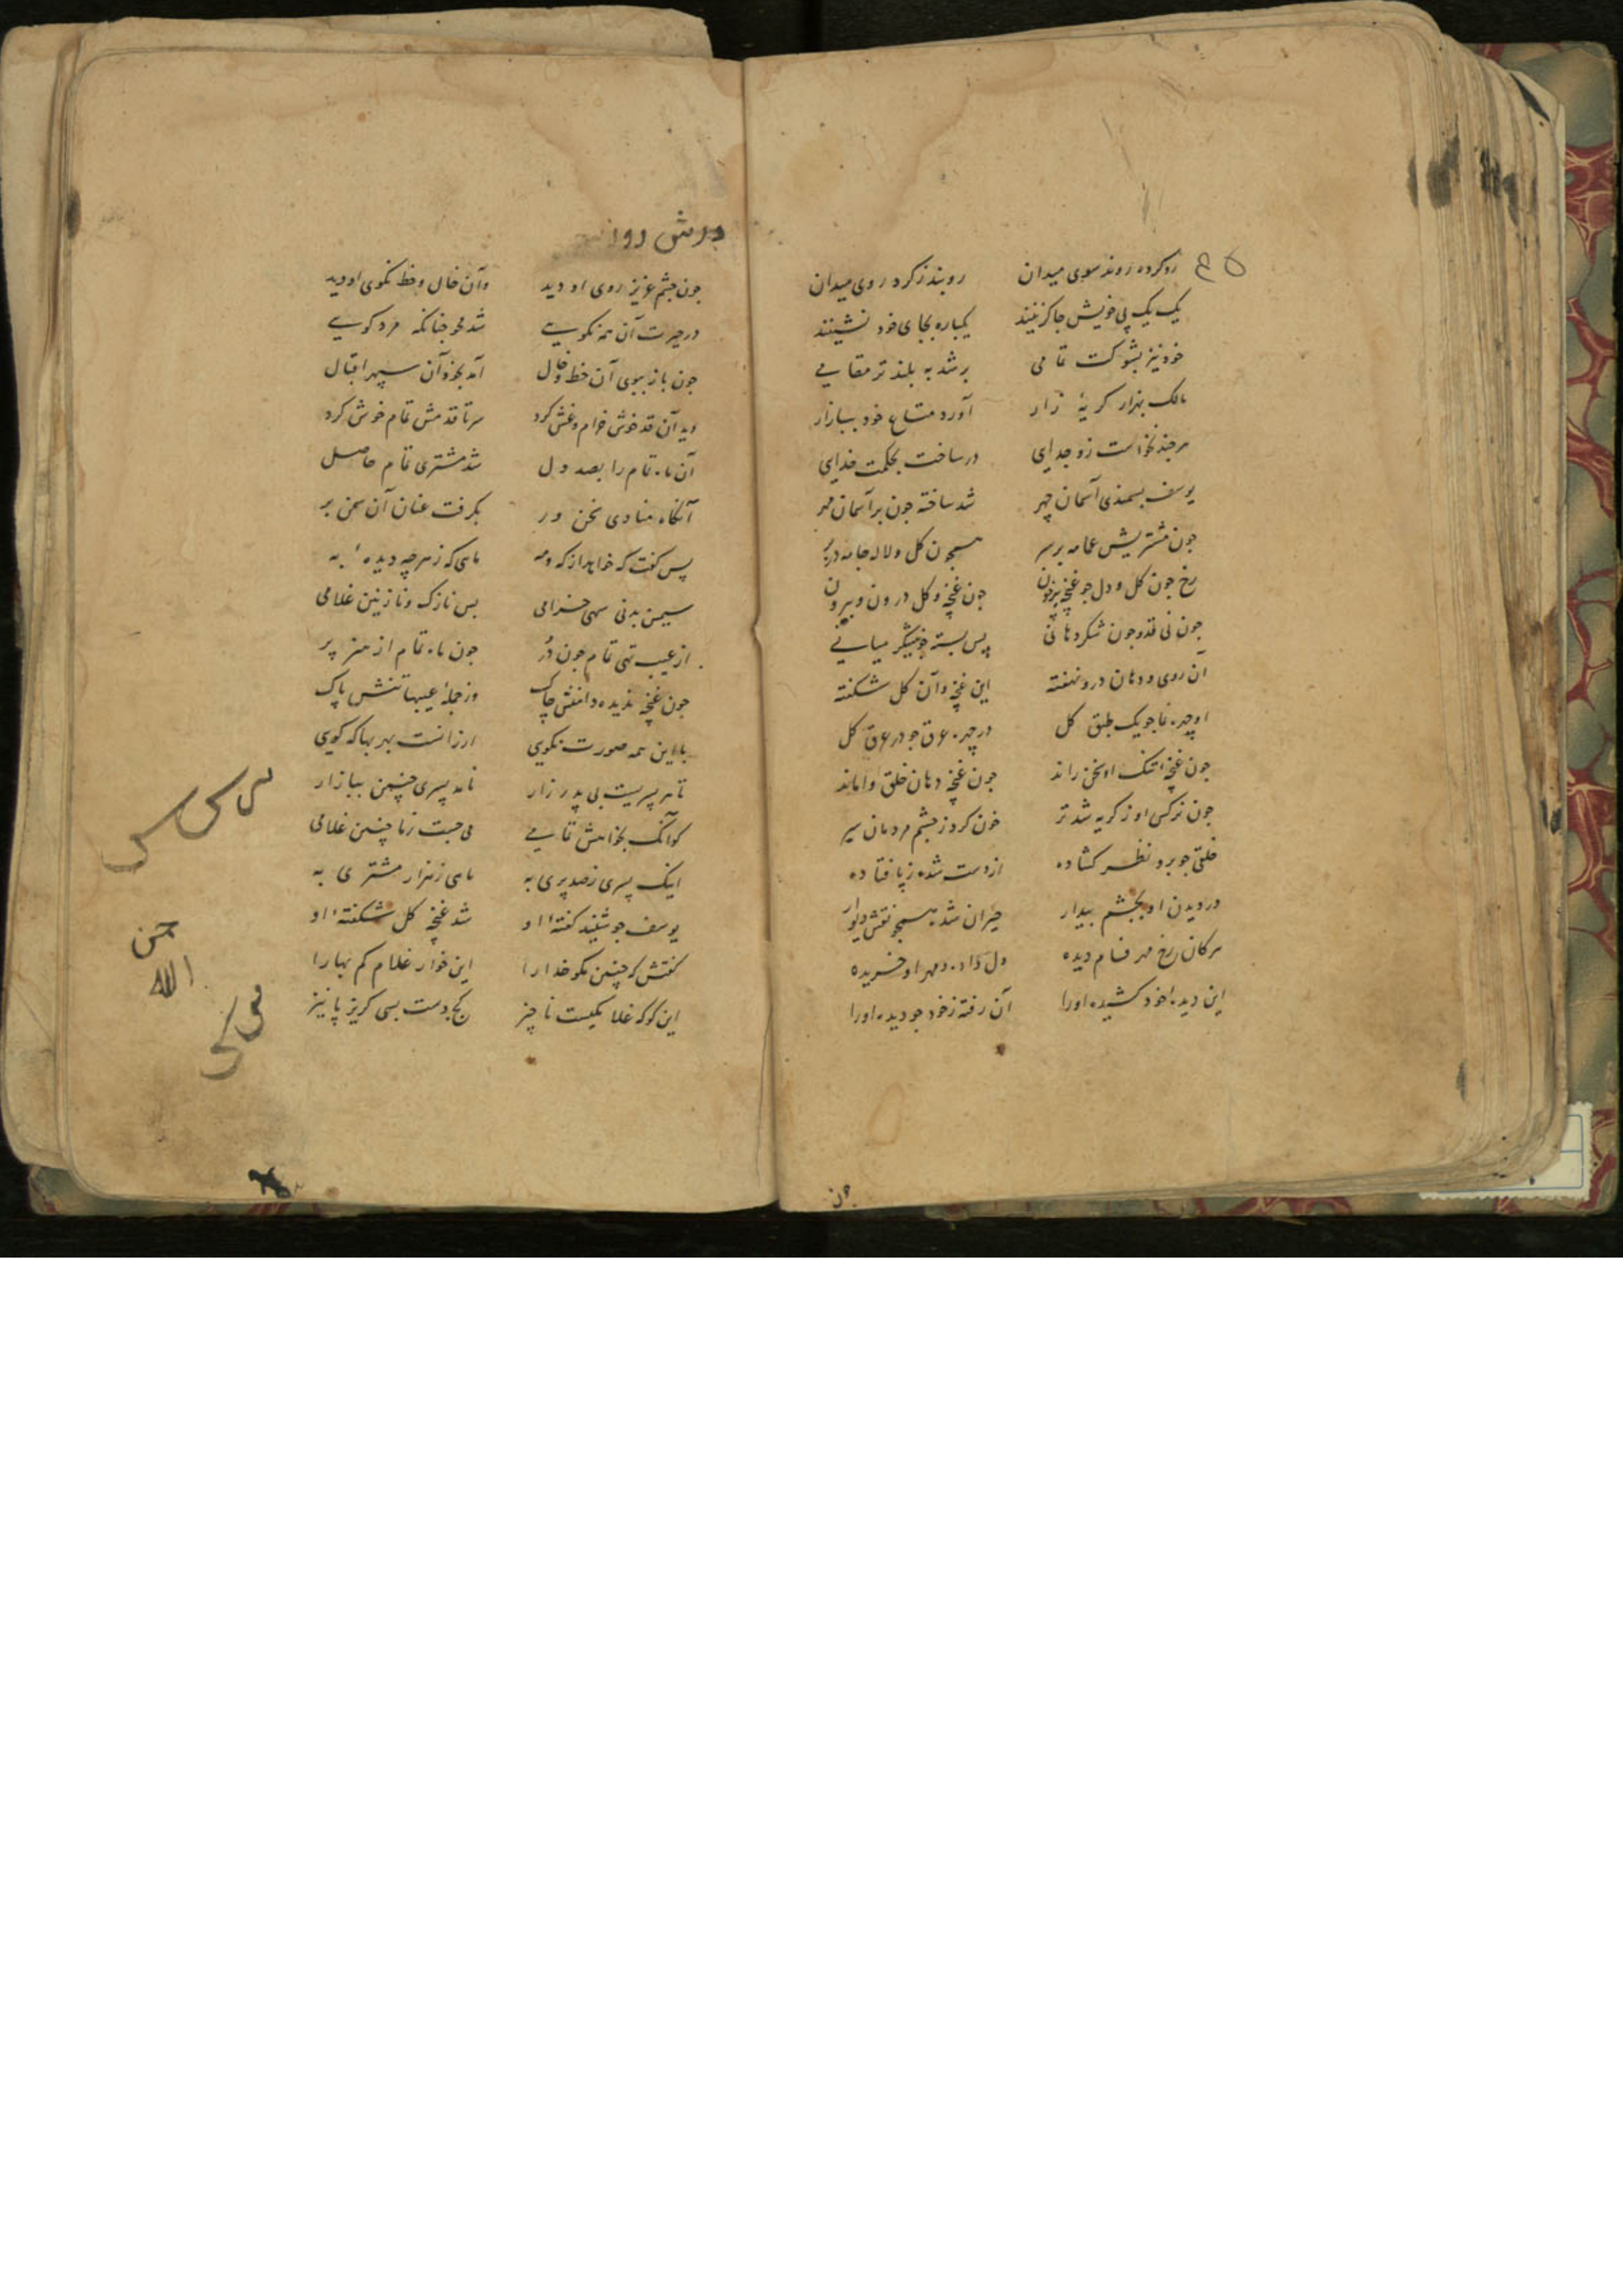 رو کرده روند سوی میدان روبند ز کرد روی میدان
یک یک پی خویش جا کزینند یکباره بجای خود نشینند
خود نیز بشوکت تمامی بر شد به بلند تر مقامی
مالک بهزار کریهٔ زار آورد متاع خود ببازار
هر چند نخواست زو جدایی در ساخت بحکمت خدایی
یوسف بسمندی آسمان چهر شد ساخته چون بر آسمان مهر
چون مشتریش عمامه بر سر همچون کل و لاله جامه در بر
رخ چون کل و دل چو غنچه پر خون چون غنچه و کل درون و بیرون
چون نی قد و چون شکر دهانی پس بسته چو نیشکر میانی
آن روی و دهان درو نهفته این غنچه و آن کل شکفته
او چهره نما چو یک طبق کل در چهره عرق چو در عرق کل
چون غنچهٔ تنک او سخن راند چون غنچه دهان خلق وا ماند
چون نرکس او ز کریه شد تر خون کرد ز چشم مردمان سر
خلقی چو برو نظر کشاده از دست شده ز پا فتاده
در دیدن او بچشم بیدار حیران شده همچو نقش دیوار
هر کان رخ مهر فام دیده دل داده و مهر او خریده
این دیده بخود کشیده او را آن رفته ز خود چو دیده او را
چون
چون چشم عزیز روی او دید وآن خال و خط نکوی او دید
در حیرت آن همه نکویی شد محو چنانکه مرد کویی
چون باز ببوی آن خط و خال آمد بخود آن سپهر اقبال
دید آن قد خوش خرام و غش کرد سر تا قدمش تمام خوش کرد
آن ماه تمام را بصد دل شد مشتری تمام حاصل
آنکاه منادی سخن ور بکرفت عنان آن سمن بر
پس کفت که خواهد از که و مه ماهی که ز هر چه دیدهٔ به
سیمین بدنی سهی خرامی بس نازک و نازنین غلامی
از عیب تهی تمام چون در چون ماه تمام از هنر پر
چون غنچه ندیده دامنش چاک وز جملهٔ عیبها تنش پاک
با این همه صورت نکویی ارزانست بهر بها که کویی
تا هر پسریست بی پدر زار نامد پسری چنین ببازار
کو آنک بخواهش تمامی می جست ز ما چنین غلامی
اینک پسری ز صد پری به ماهی ز هزار مشتری به
یوسف چو شنید کفتهٔ او شد غنچه کل شکفتهٔ او
کفتش که چنین مکو خدا را این خوار غلام کم بها را
این کو که غلامکیست ناچیز کج دست بسی کریز پا نیز
حسن
الله